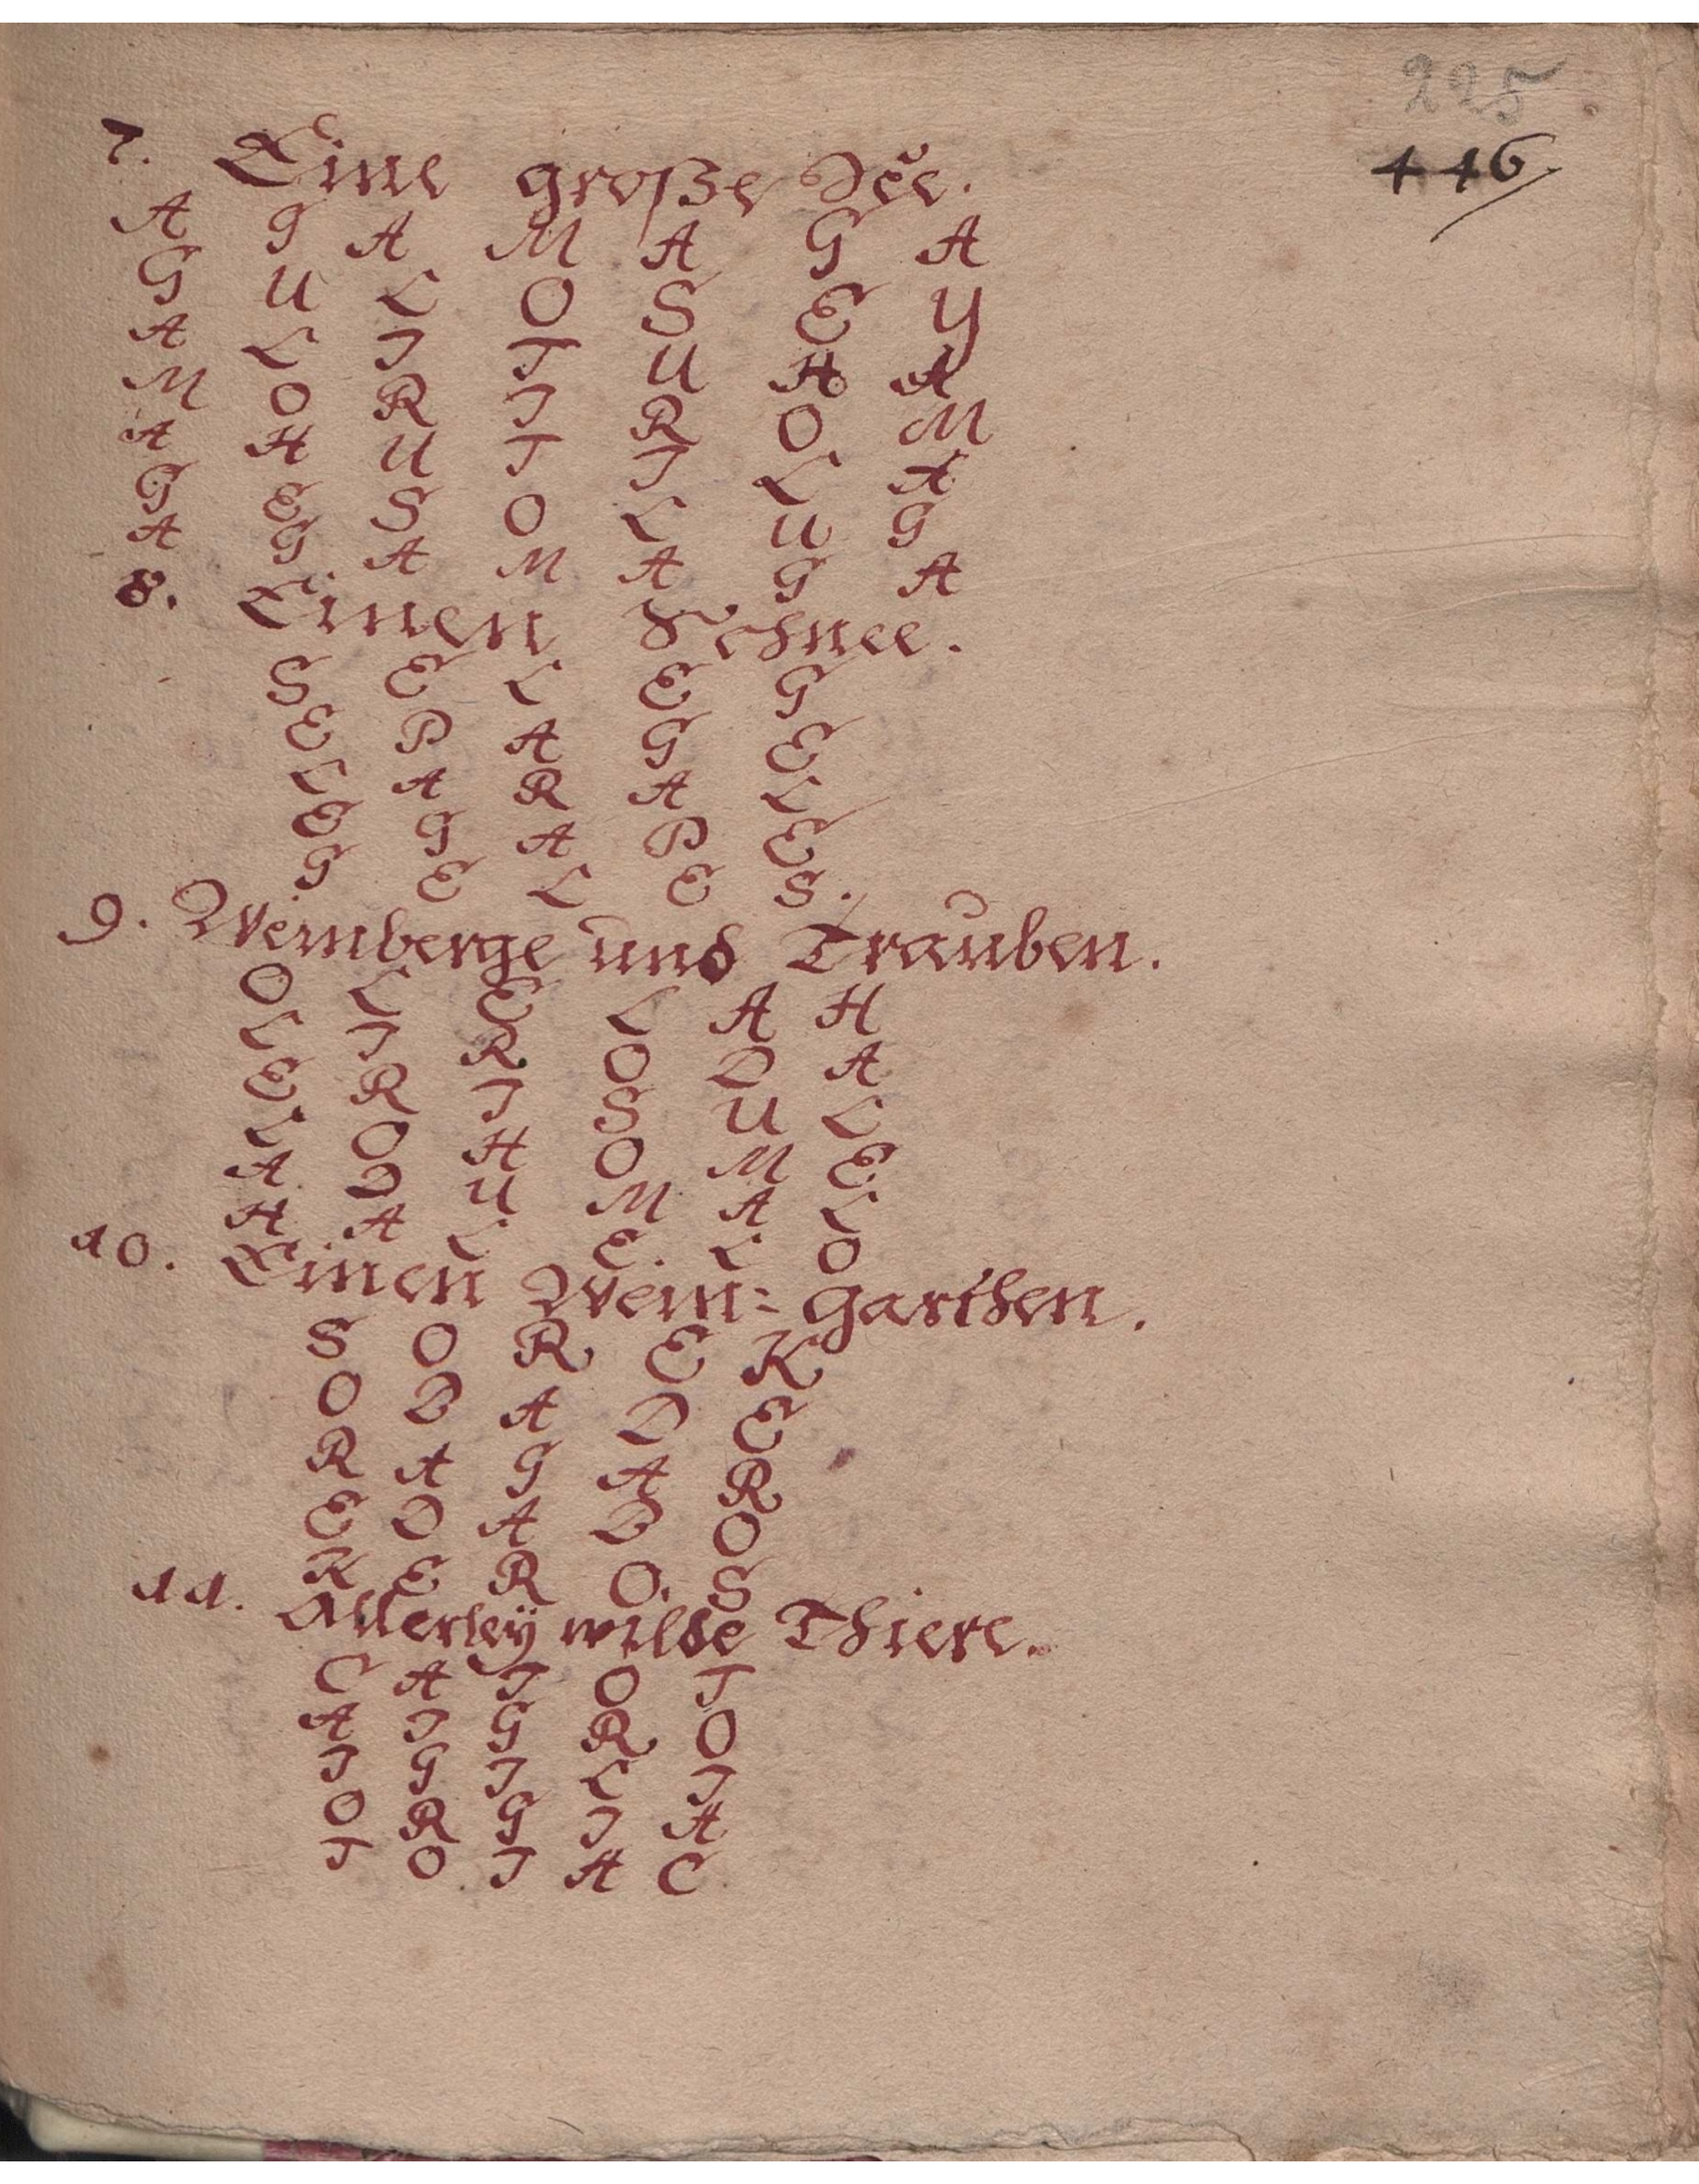 225
446
7. Eine große See.
A G A M A G A
G U L O S E Y
A L I T U H A
M O R I R O M
A H U T I L A
G E S O L U G
A G A M A G A
8. Einen Schnee.
S E L E G
E P A G E
L A R A L
E G A P E
G E L E S.
9. Weinberge und Trauben.
O L E L A H
L I R O D A
E R I S U L
L O H O M E
A D U M A L
H A L E L O
10. Einen Wein= Garthen.
S O R E K
O B A D E
R A G A R
E D A B O
K E R O S
11. Allerley wilde Thiere.
C A I O T
A I G R O
I G I L I
O R G I A
T O I A C